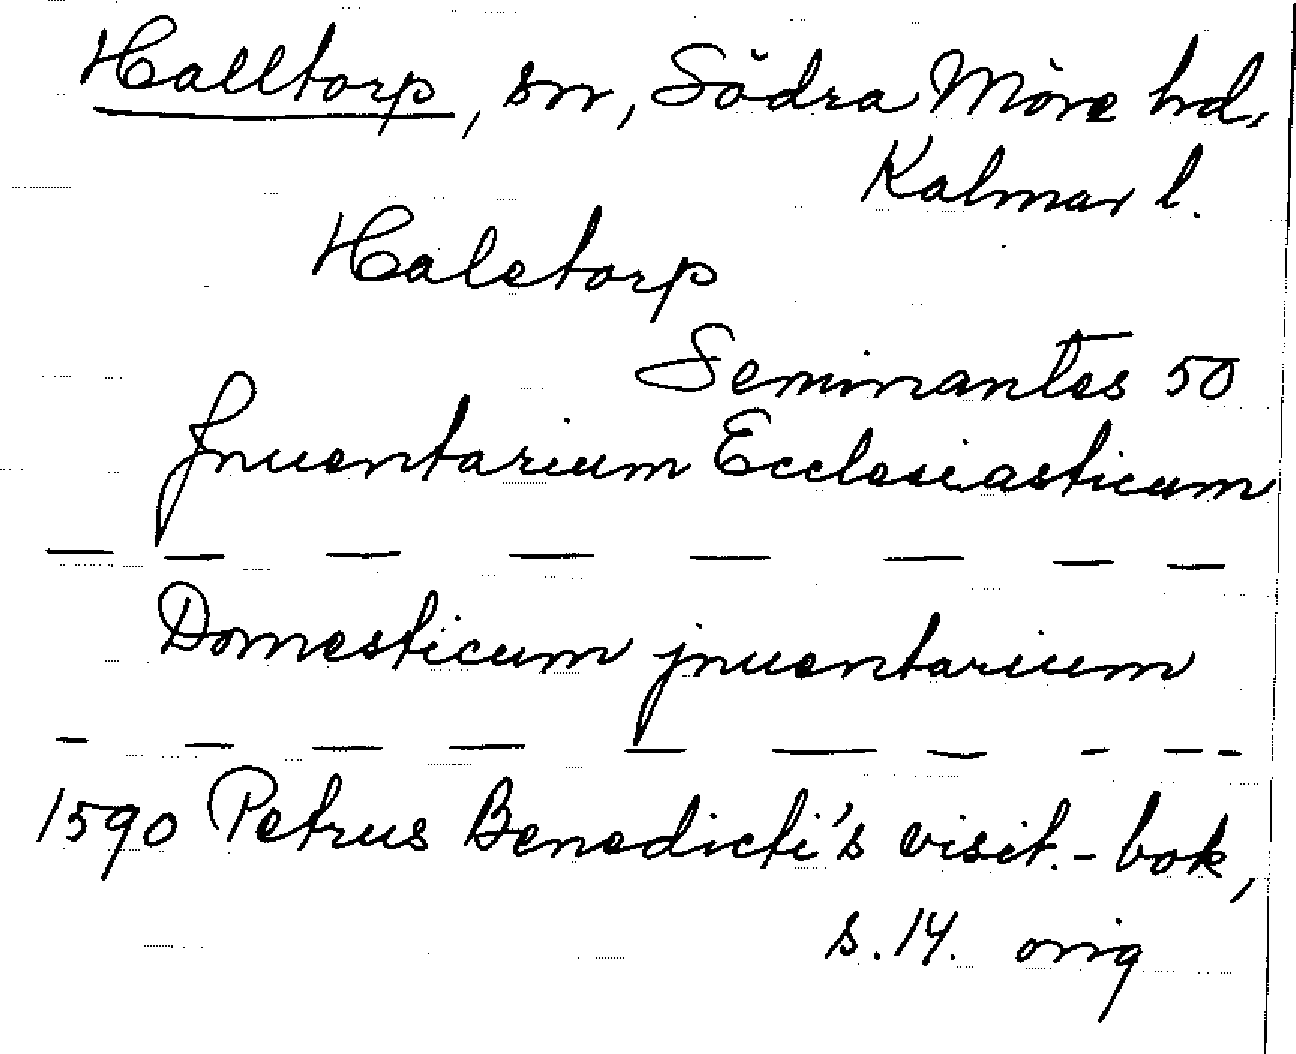 Halltorp, sn, Södra Möre hd,
Kalmar l.
Haletorp
Seminantes 50
Jnuentarium Ecclesiasticum
— — — — — — — —
Domesticum jnuentarium
— — — — — — — — — —
1590 Petrus Benedicti's visit.-bok,
s. 14. orig